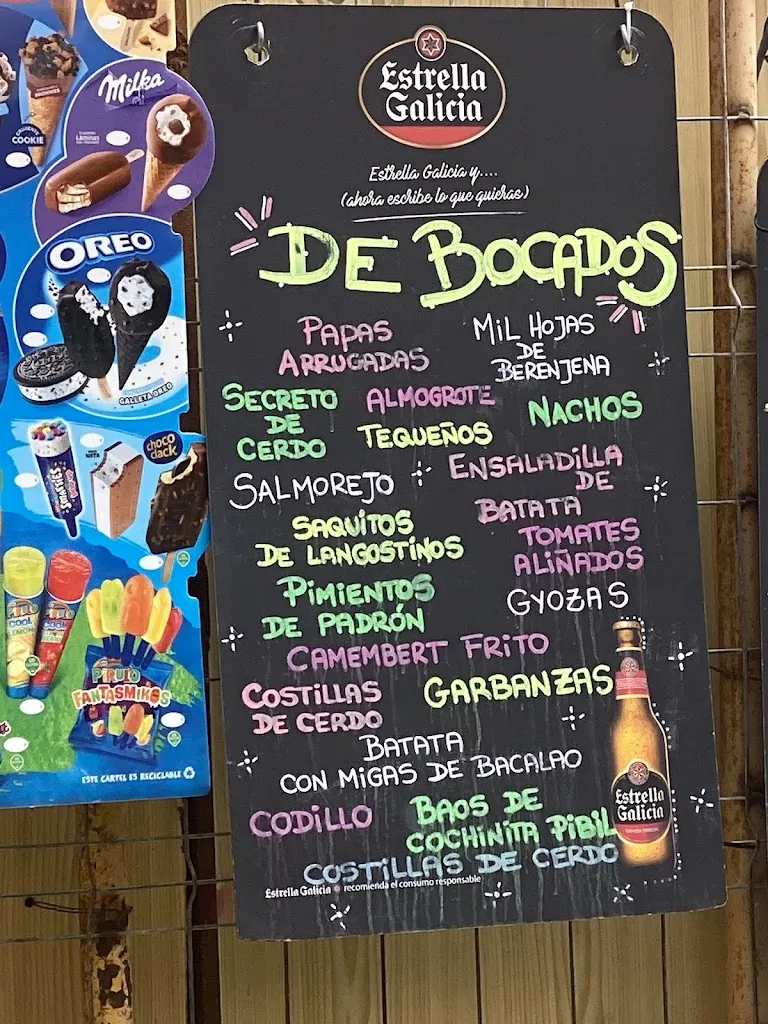 Milka
CRUJIENTE
COOKIE
OREO
GALLETA OREO
SMARTIES
choco
clack
PIRULO
COOL
PIRULO
FANTASMIKOS
ESTE CARTEL ES RECICLABLE
Estrella
Galicia
Estrella Galicia y....
(ahora escribe lo que quieras)
DE BOCADOS
PAPAS
ARRUGADAS
MIL HOJAS
DE
BERENJENA
SECRETO
DE
CERDO
ALMOGROTE
NACHOS
TEQUEÑOS
SALMOREJO
ENSALADILLA
DE
BATATA
SAQUITOS
DE LANGOSTINOS
TOMATES
ALIÑADOS
PIMIENTOS
DE PADRÓN
GYOZAS
CAMEMBERT FRITO
COSTILLAS
DE CERDO
GARBANZAS
BATATA
CON MIGAS DE BACALAO
CODILLO
BAOS DE
COCHINITA PIBIL
COSTILLAS DE CERDO
Estrella
Galicia
Estrella Galicia recomienda el consumo responsable